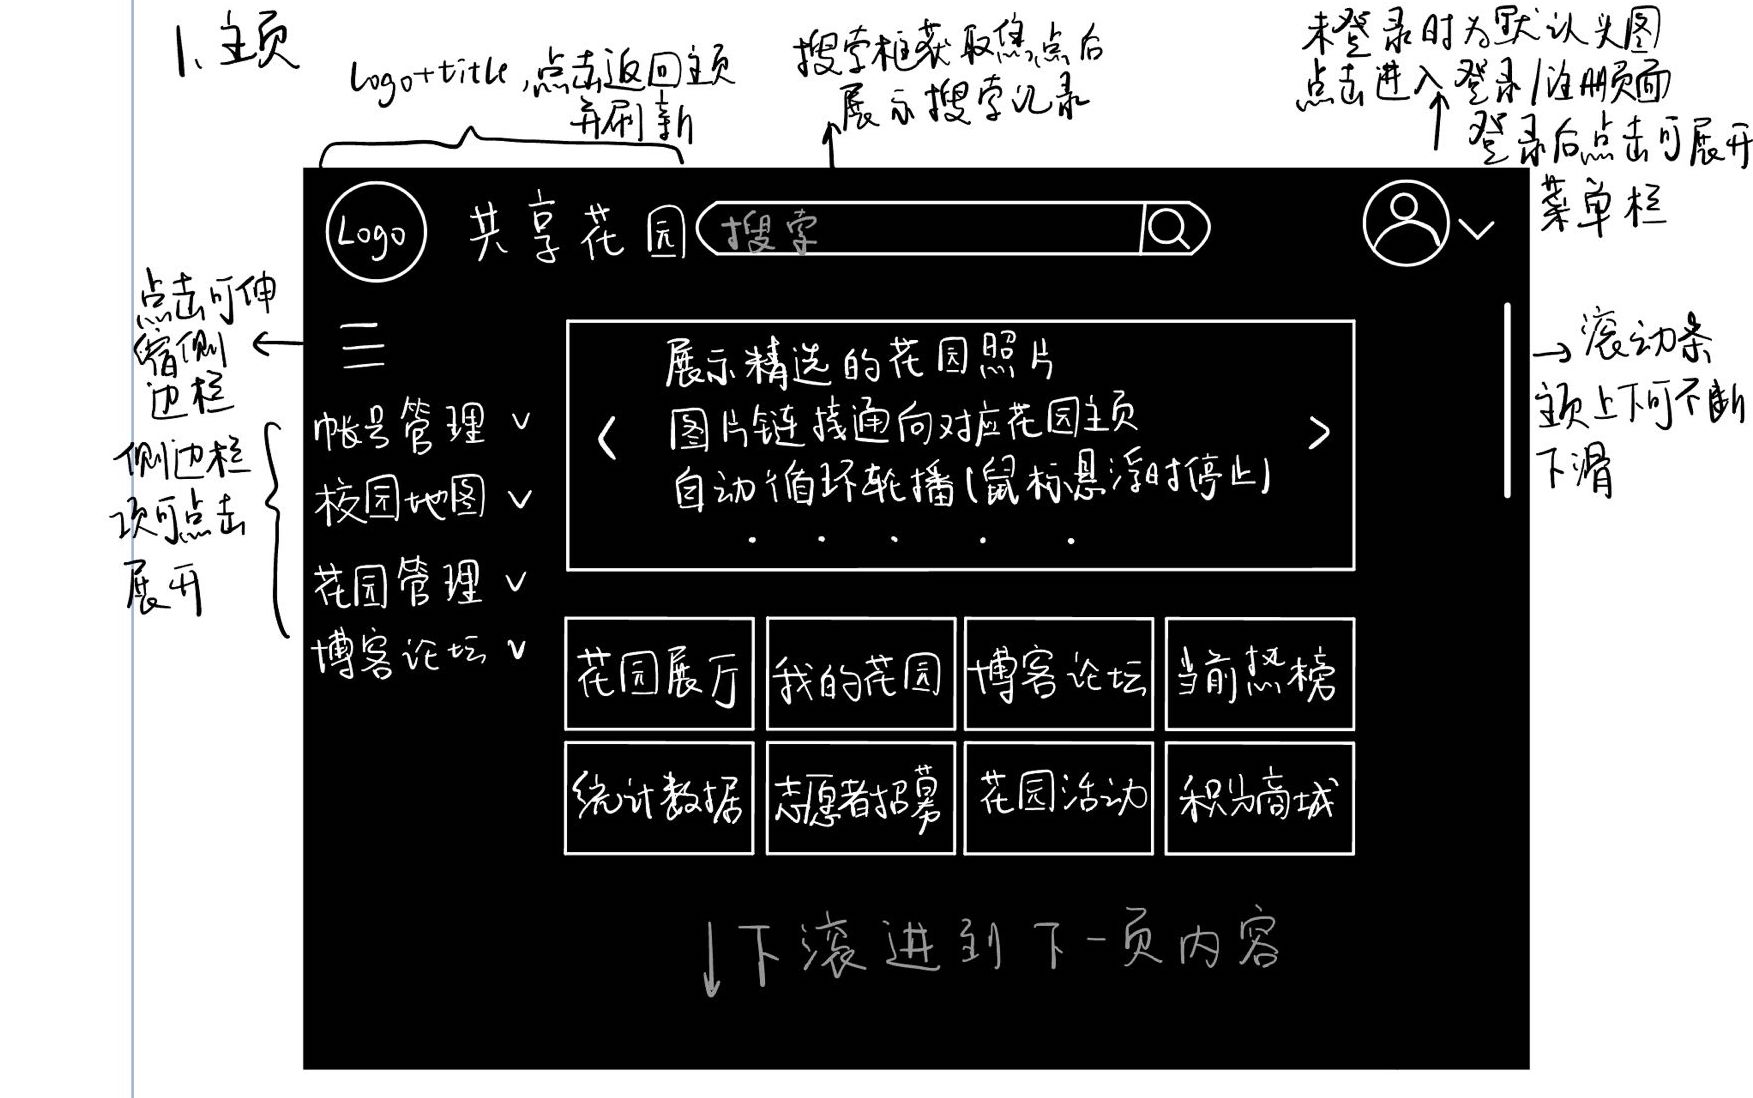 1、主页
Logo+title,点击返回主页
并刷新
搜索框获取焦点后
展示搜索记录
未登录时为默认头图
点击进入登录/注册页面
登录后点击可展开
菜单栏
Logo
共享花园
搜索
点击可伸
缩侧
边栏
侧边栏
项可点击
展开
帐号管理
校园地图
花园管理
博客论坛
<
展示精选的花园照片
图片链接通向对应花园主页
自动循环轮播(鼠标悬浮时停止)
>
→滚动条
主页上下可不断
下滑
花园展厅
我的花园
博客论坛
当前热榜
统计数据
志愿者招募
花园活动
积分商城
↓下滚进到下一页内容